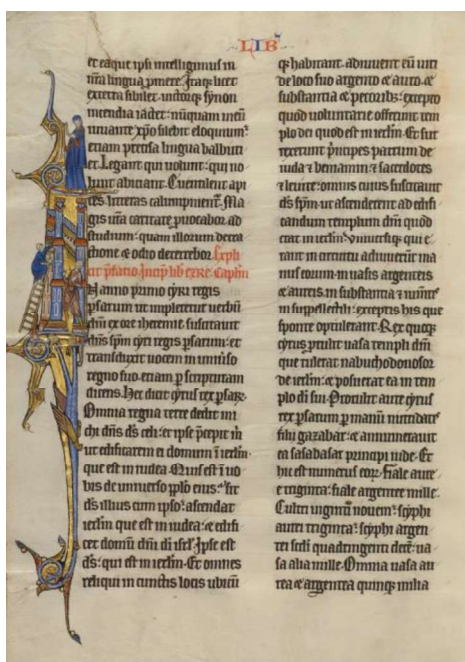 LIB
et eaque ipsi intelligimus in
nr̄a lingua ꝓmere. Itaq; licet
excetra sibilet. uictorq; synon
incendia iactet: nūquam meū
iuuante xp̄o silebit eloquium:
etiam precisa lingua balbuti
et. Legant qui uolunt: qui no
lunt abiciant. Euentilent api
ces. litteras calumpnient̄. Ma
gis ur̄a caritate ꝓuocabor ad
studium: quam illorum detra
ctione & odio deterrebor. Expli
cit p̄fatio. Incip̄ lib̄ ezre. Capl̄m
IN anno primo cyri regis
ꝑsarum ut impleretur uerbū
dn̄i ex ore iheremie. suscitauit
dn̄s sp̄m cyri regis ꝑsarum: et
transduxit uocem in uniuso
regno suo. etiam ꝑ scripturam
dicens. Hec dicit cyrus rex ꝑsarū.
Omnia regna terre dedit mi
chi dn̄s ds̄ celi: et ipse p̄cepit m̄
ut edificarem ei domum ī ierlm̄
que est in iudea. Quis est ī uo
bis de uniuerso pp̄lo eius. sit
ds̄ illius cum ipso: ascendat
ierlm̄ que est in iudea: & edifi
cet domū dn̄i di isrl̄. Ipse est
ds̄: qui est in ierlm̄. Et omnes
reliqui in cunctis locis ubicū
q; habitant. adiuuent eū uiri
de loco suo argento & auro. &
substantia & pecorib;. excepto
quod uoluntarie offerunt tem
plo dei quod est in ierlm̄. Et sur
rexerunt p̄ncipes patrum de
iuda & beniamin. & sacerdotes
& leuite: omnis cuius suscitauit
ds̄ sp̄m. ut ascenderent ad edifi
candum templum dn̄i quod
erat in ierlm̄. Vniuersiq; qui e
rant in circuitu adiuuerūt ma
nus eorum in uasis argenteis
& aureis. in substantia & iumt̄
in suppellectili: exceptis his que
sponte optulerant. Rex quoq;
cyrus ꝓtulit uasa templi dn̄i
que tulerat nabuchodonosor
de ierlm̄: & posuerat ea in tem
plo di sui. Protulit aute cyrus
rex ꝑsarum ꝑ manū mitridati
filii gazabar: & annumerauit
ea sasabasar principi iude. Et
hic est numerus eorꝫ. Fiale auree
triginta: fiale argentee mille.
Cultri uiginti nouem: scyphi
aurei triginta: scyphi argen
tei scdi quadringenti decē: ua
sa alia mille. Omnia uasa au
rea & argentea quinq; milia